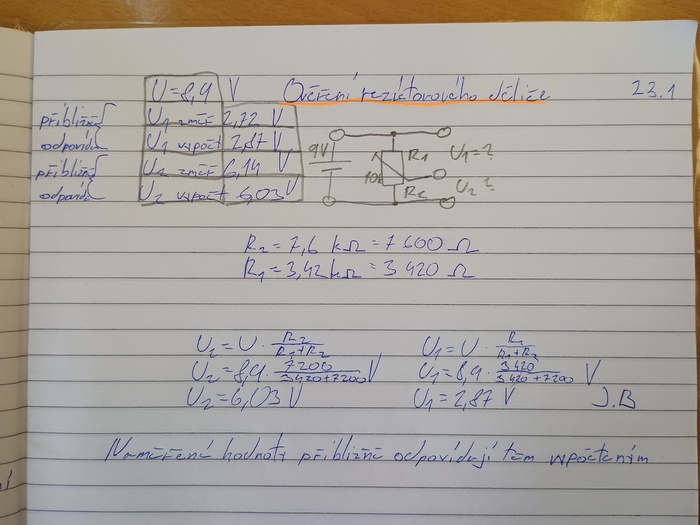 Ověření rezistorového děliče 23.1
U=8,9 V
přibližně U₁ změř 2,72 V
odpovídá U₁ vypočt 2,87 V
přibližně U₂ změř 6,14 V
odpovídá U₂ vypočt 6,03V
9V
10k
R₁
R₂
U₁=?
U₂?
R₂=7,6 kΩ=7 600 Ω
R₁=3,42kΩ=3 420 Ω
U₂=U·R₂/(R₁+R₂)
U₂=8,9·7200/(3420+7200) V
U₂=6,03 V
U₁=U·R₁/(R₁+R₂)
U₁=8,9·3420/(3420+7200) V
U₁=2,87 V
J.B
Naměřené hodnoty přibližně odpovídají těm vypočteným